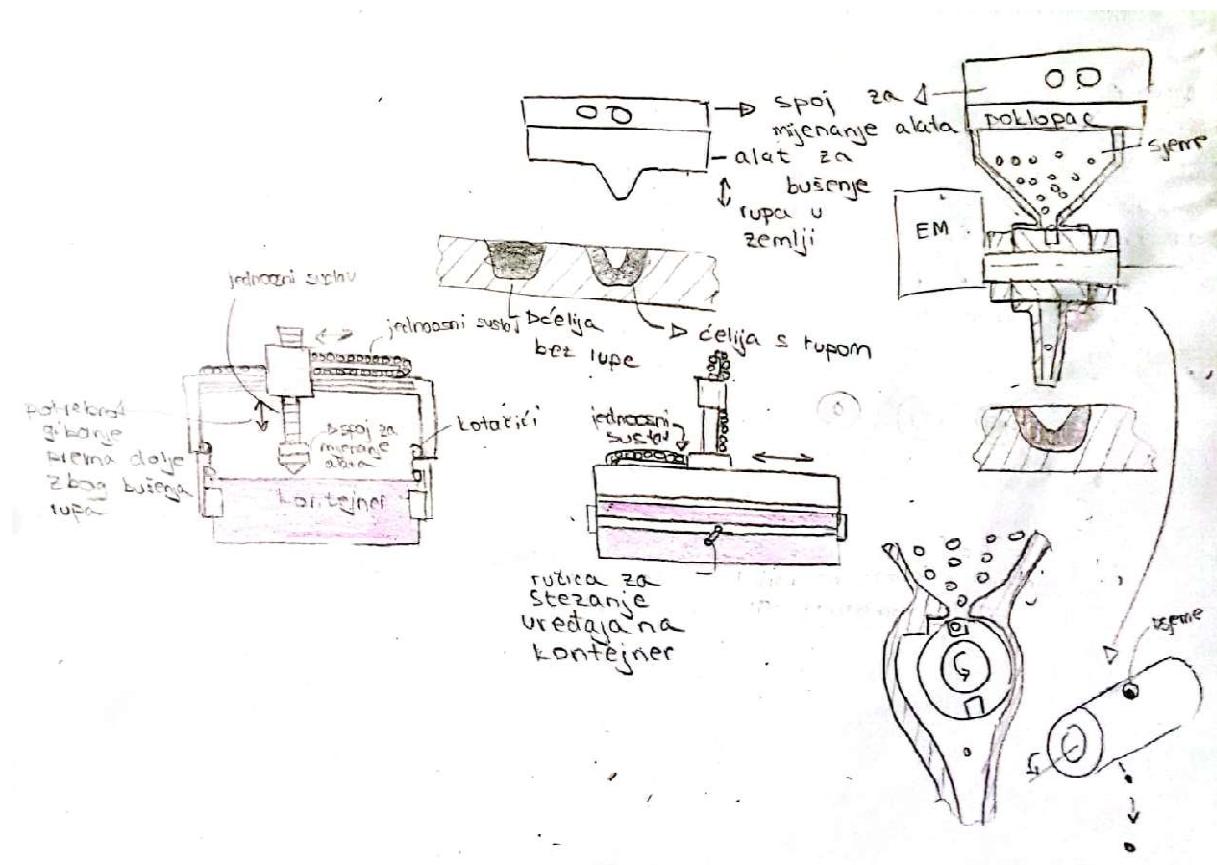 spoj za
mijenanje alata
alat za
bušenje
rupa u
zemlji
poklopac
sjeme
EM
ćelija
bez rupe
ćelija s rupom
jednoosni sustav
jednoosni sustav
gibanje
prema dolje
zbog bušenja
rupa
spoj za
mijenanje
alata
kotačići
kontejner
jednoosni
sustav
ručica za
stezanje
uređaja na
kontejner
sjeme